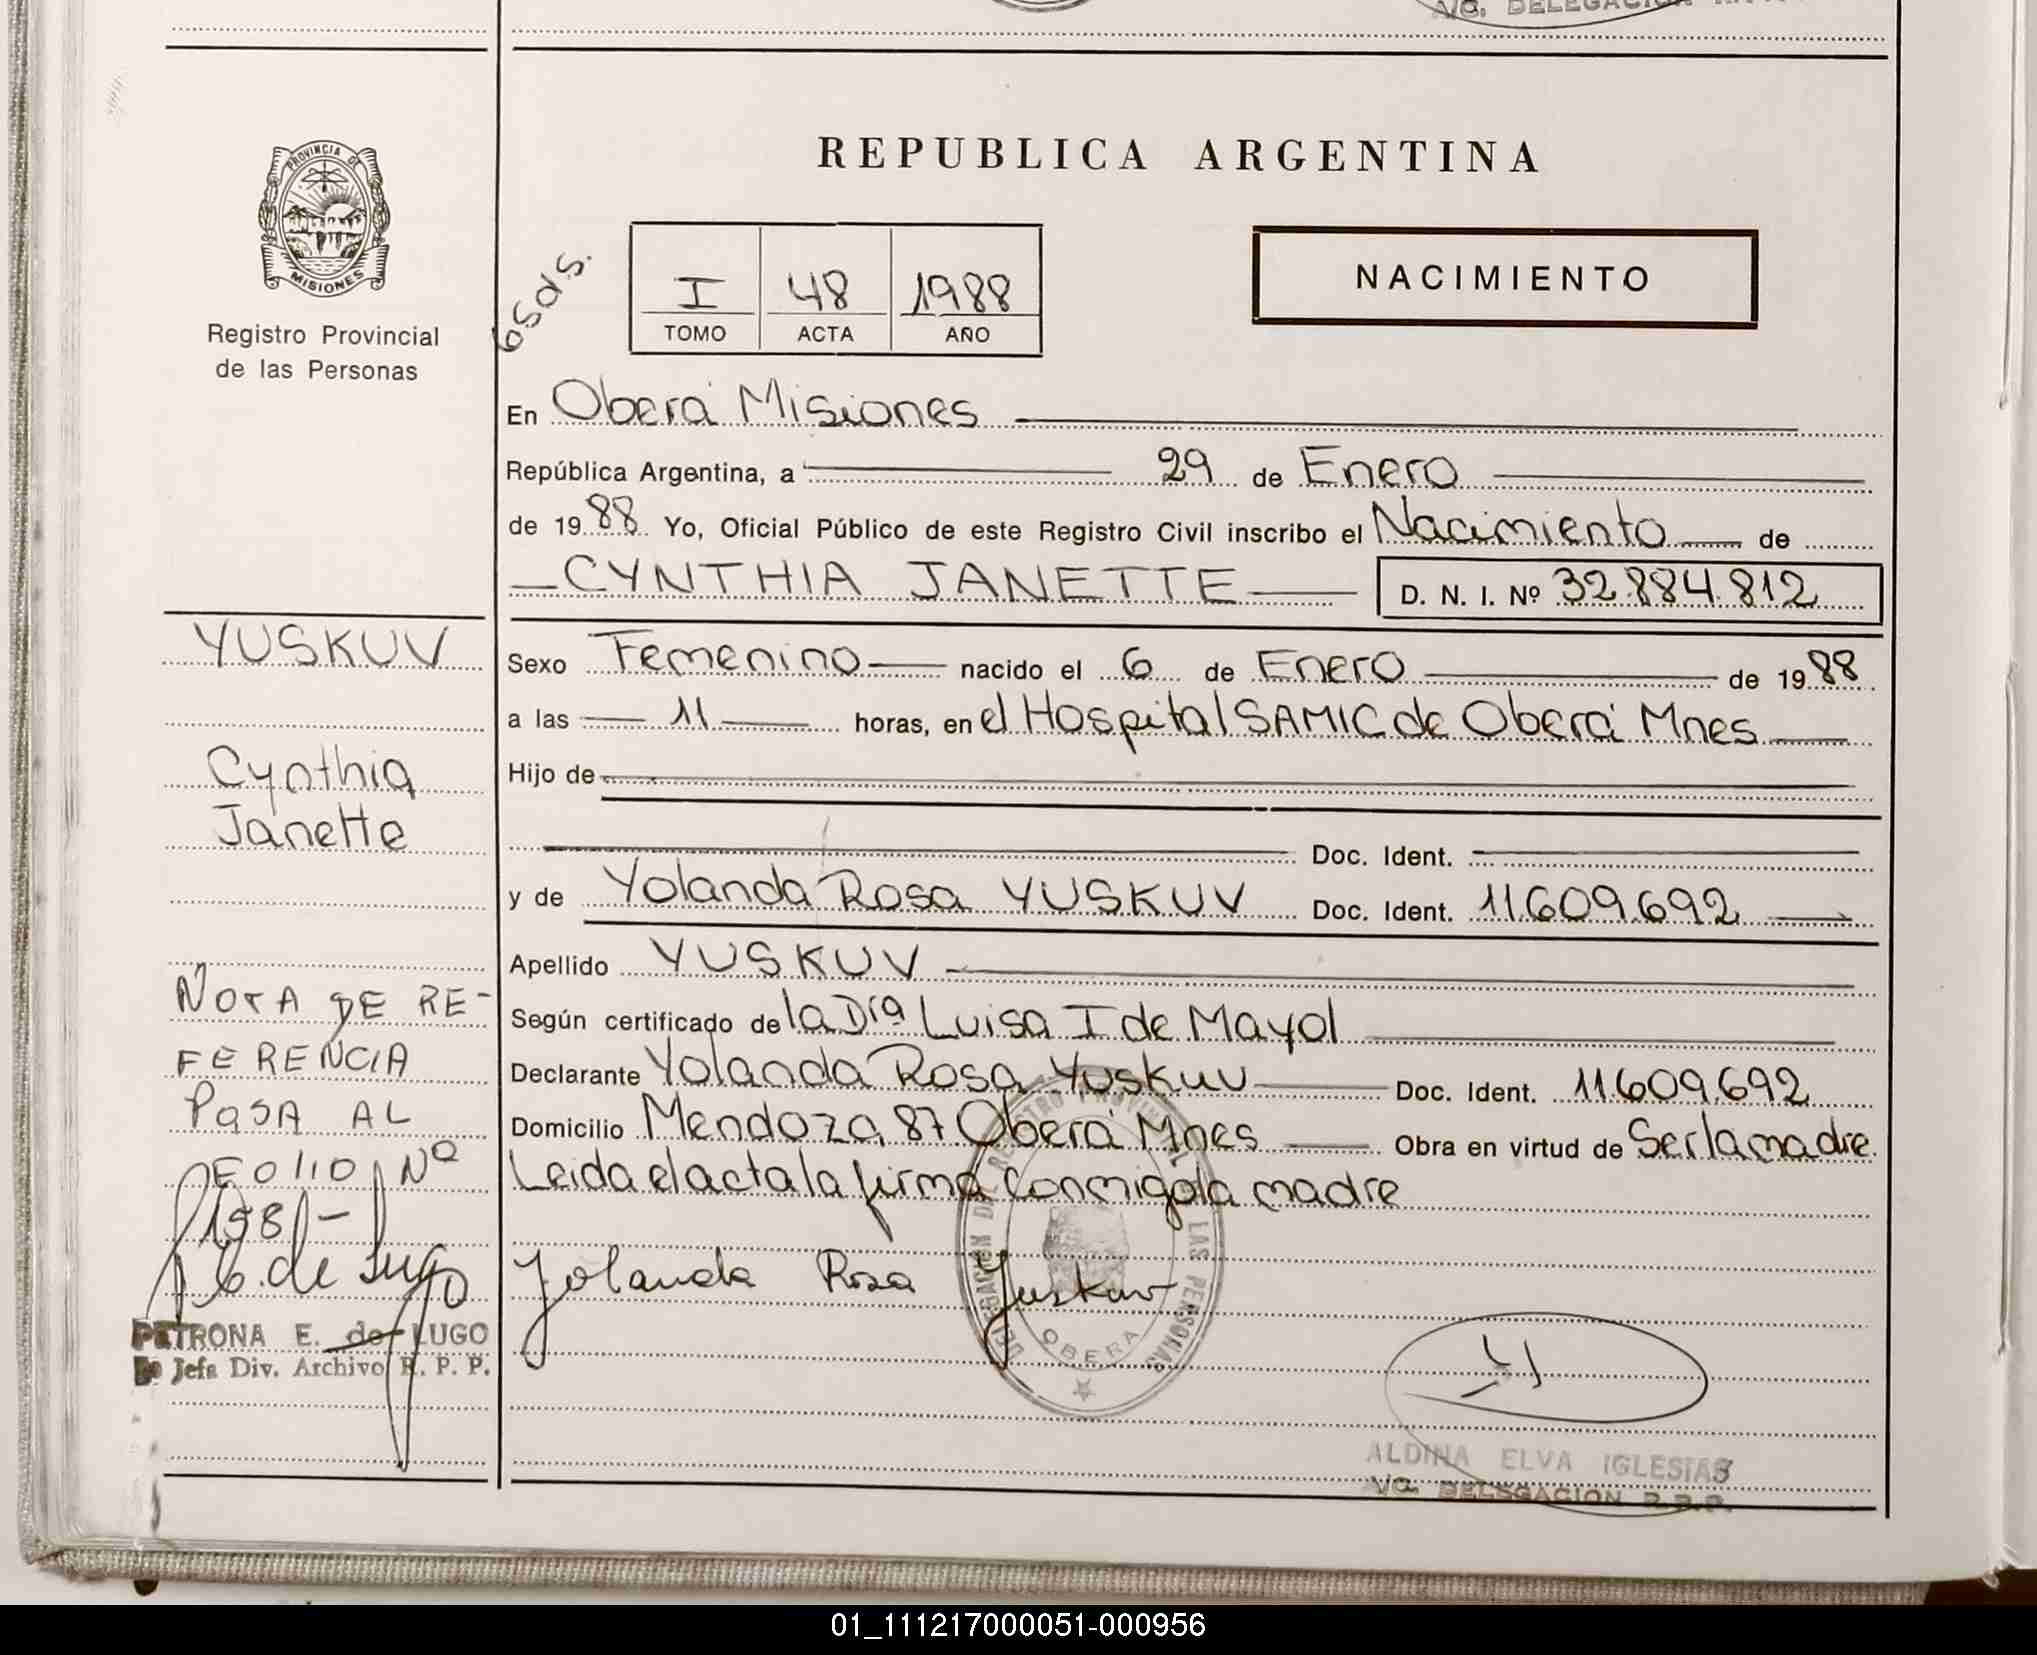 A/C. DELEGACION
PROVINCIA DE
MISIONES
Registro Provincial
de las Personas
REPUBLICA ARGENTINA
I 48 1988
TOMO ACTA AÑO
NACIMIENTO
En Oberá Misiones
República Argentina, a 29 de Enero
de 1988 Yo, Oficial Público de este Registro Civil inscribo el Nacimiento de
CYNTHIA JANETTE D. N. I. Nº 32.884.812
YUSKUV
Cynthia
Janette
Sexo Femenino nacido el 6 de Enero de 1988
a las 11 horas, en el Hospital SAMIC de Oberá Mnes
Hijo de
Doc. Ident.
y de Yolanda Rosa YUSKUV Doc. Ident. 11.609.692
Apellido YUSKUV
Según certificado de la Dra Luisa I de Mayol
Declarante Yolanda Rosa Yuskuv Doc. Ident. 11.609.692
Domicilio Mendoza 87 Oberá Mnes Obra en virtud de Ser la madre.
Leida el acta la firma conmigo la madre
Yolanda Rosa Yuskuv
NOTA DE RE-
FERENCIA
PASA AL
FOLIO Nº
198-
de Lugo
PETRONA E. de LUGO
Jefa Div. Archivo R. P. P.
DELEGACIÓN DE REGISTRO PROVINCIAL DE LAS PERSONAS
OBERA
ALDINA ELVA IGLESIAS
A/C. DELEGACION R.P.P.
01_111217000051-000956